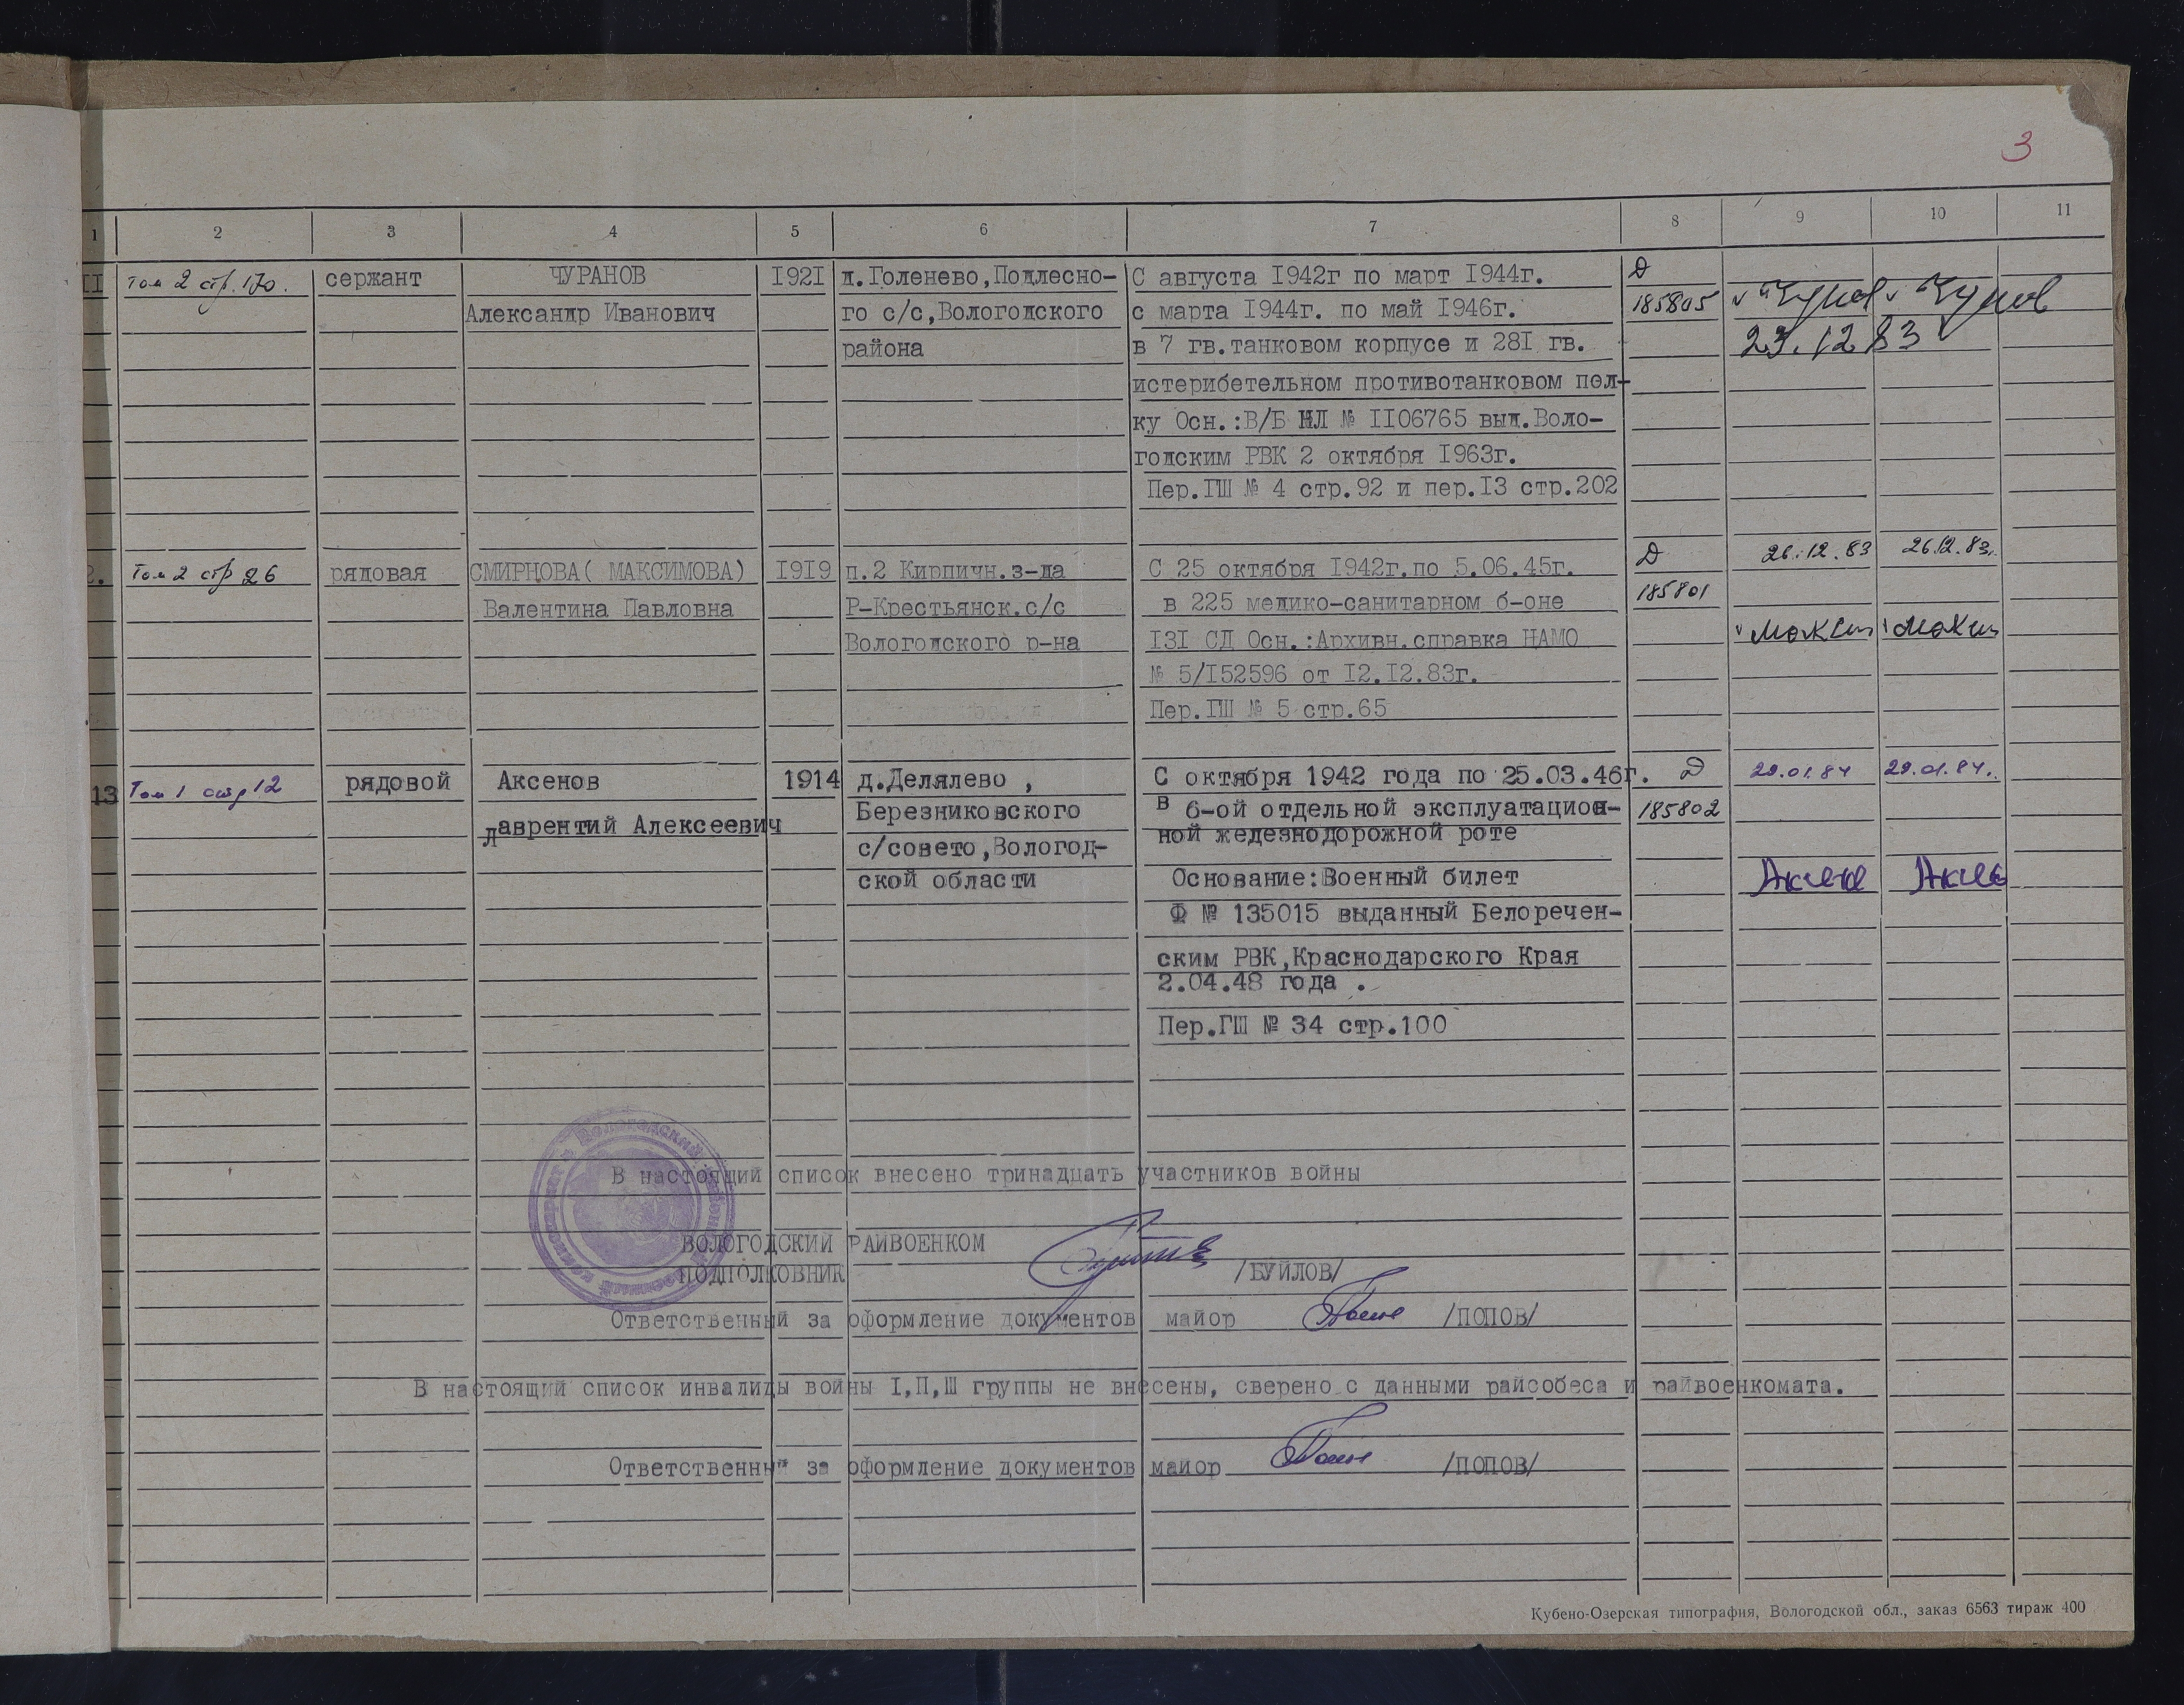 3
1 2 3 4 5 6 7 8 9 10 11
II том 2 стр. 170. сержант ЧУРАНОВ 1921 д.Голенево,Подлесно- С августа 1942г по март 1944г. Д
Александр Иванович го с/с,Вологодского с марта 1944г. по май 1946г. 185805
района в 7 гв.танковом корпусе и 281 гв. 23.12 83
истерибетельном противотанковом пол-
ку Осн.:В/Б НЛ № 1106765 выд.Воло-
годским РВК 2 октября 1963г.
Пер.ГШ № 4 стр.92 и пер.13 стр.202
2. Том 2 стр 26 рядовая СМИРНОВА( МАКСИМОВА) 1919 п.2 Кирпичн.з-да С 25 октября 1942г.по 5.06.45г. Д 26.12.83 26.12.83.
Валентина Павловна Р-Крестьянск.с/с в 225 медико-санитарном б-оне 185801
Вологодского р-на 131 СД Осн.:Архивн.справка НАМО
№ 5/152596 от 12.12.83г.
Пер.ГШ № 5 стр.65
13 Том 1 стр 12 рядовой Аксенов 1914 д.Делялево , С октября 1942 года по 25.03.46г. Д 29.01.84 29.01.84.
лаврентий Алексеевич Березниковского в 6-ой отдельной эксплуатацион- 185802
ной железнодорожной роте
с/совето,Вологод-
ской области Основание:Военный билет
Ф № 135015 выданный Белоречен-
ским РВК,Краснодарского Края
2.04.48 года .
Пер.ГШ № 34 стр.100
В настоящий список внесено тринадцать участников войны
ВОЛОГОДСКИЙ РАЙВОЕНКОМ
ПОДПОЛКОВНИК /БУЙЛОВ/
Ответственный за оформление документов майор /ПОПОВ/
В настоящий список инвалиды войны I,П,Ш группы не внесены, сверено с данными райсобеса и райвоенкомата.
Ответственный за оформление документов майор /ПОПОВ/
Кубено-Озерская типография, Вологодской обл., заказ 6563 тираж 400